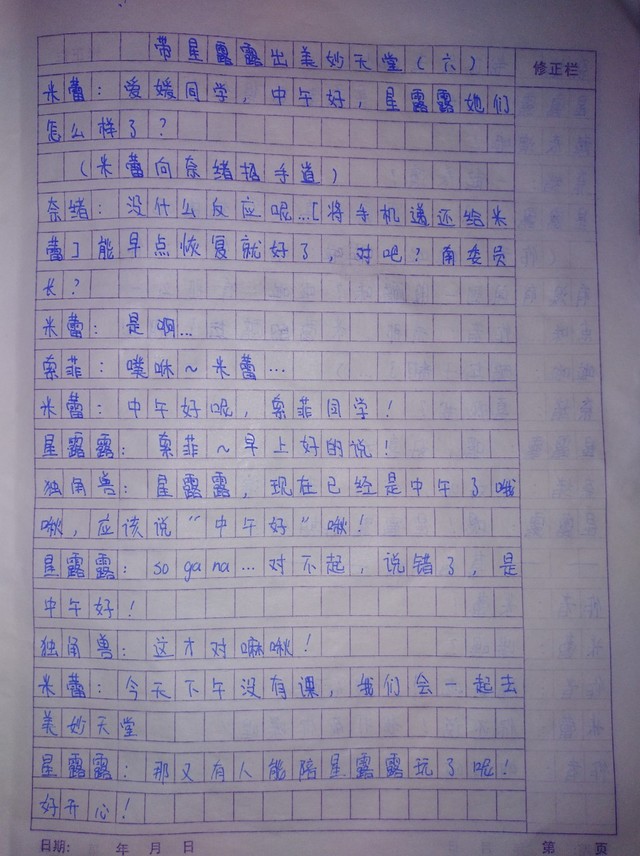 带星露露出美妙天堂(六)
修正栏
米蕾:爱媛同学,中午好,星露露她们
怎么样了?
(米蕾向奈绪招手道)
奈绪:没什么反应呢…[将手机递还给米
蕾]能早点恢复就好了,对吧?南委员
长?
米蕾:是啊…
索菲:噗咻~米蕾…
米蕾:中午好呢,索菲同学!
星露露:索菲~早上好的说!
独角兽:星露露,现在已经是中午了哦
啾,应该说“中午好”啾!
星露露:so ga na…对不起,说错了,是
中午好!
独角兽:这才对嘛啾!
米蕾:今天下午没有课,我们会一起去
美妙天堂
星露露:那又有人能陪星露露玩了呢!
好开心!
日期: 年 月 日 第 页